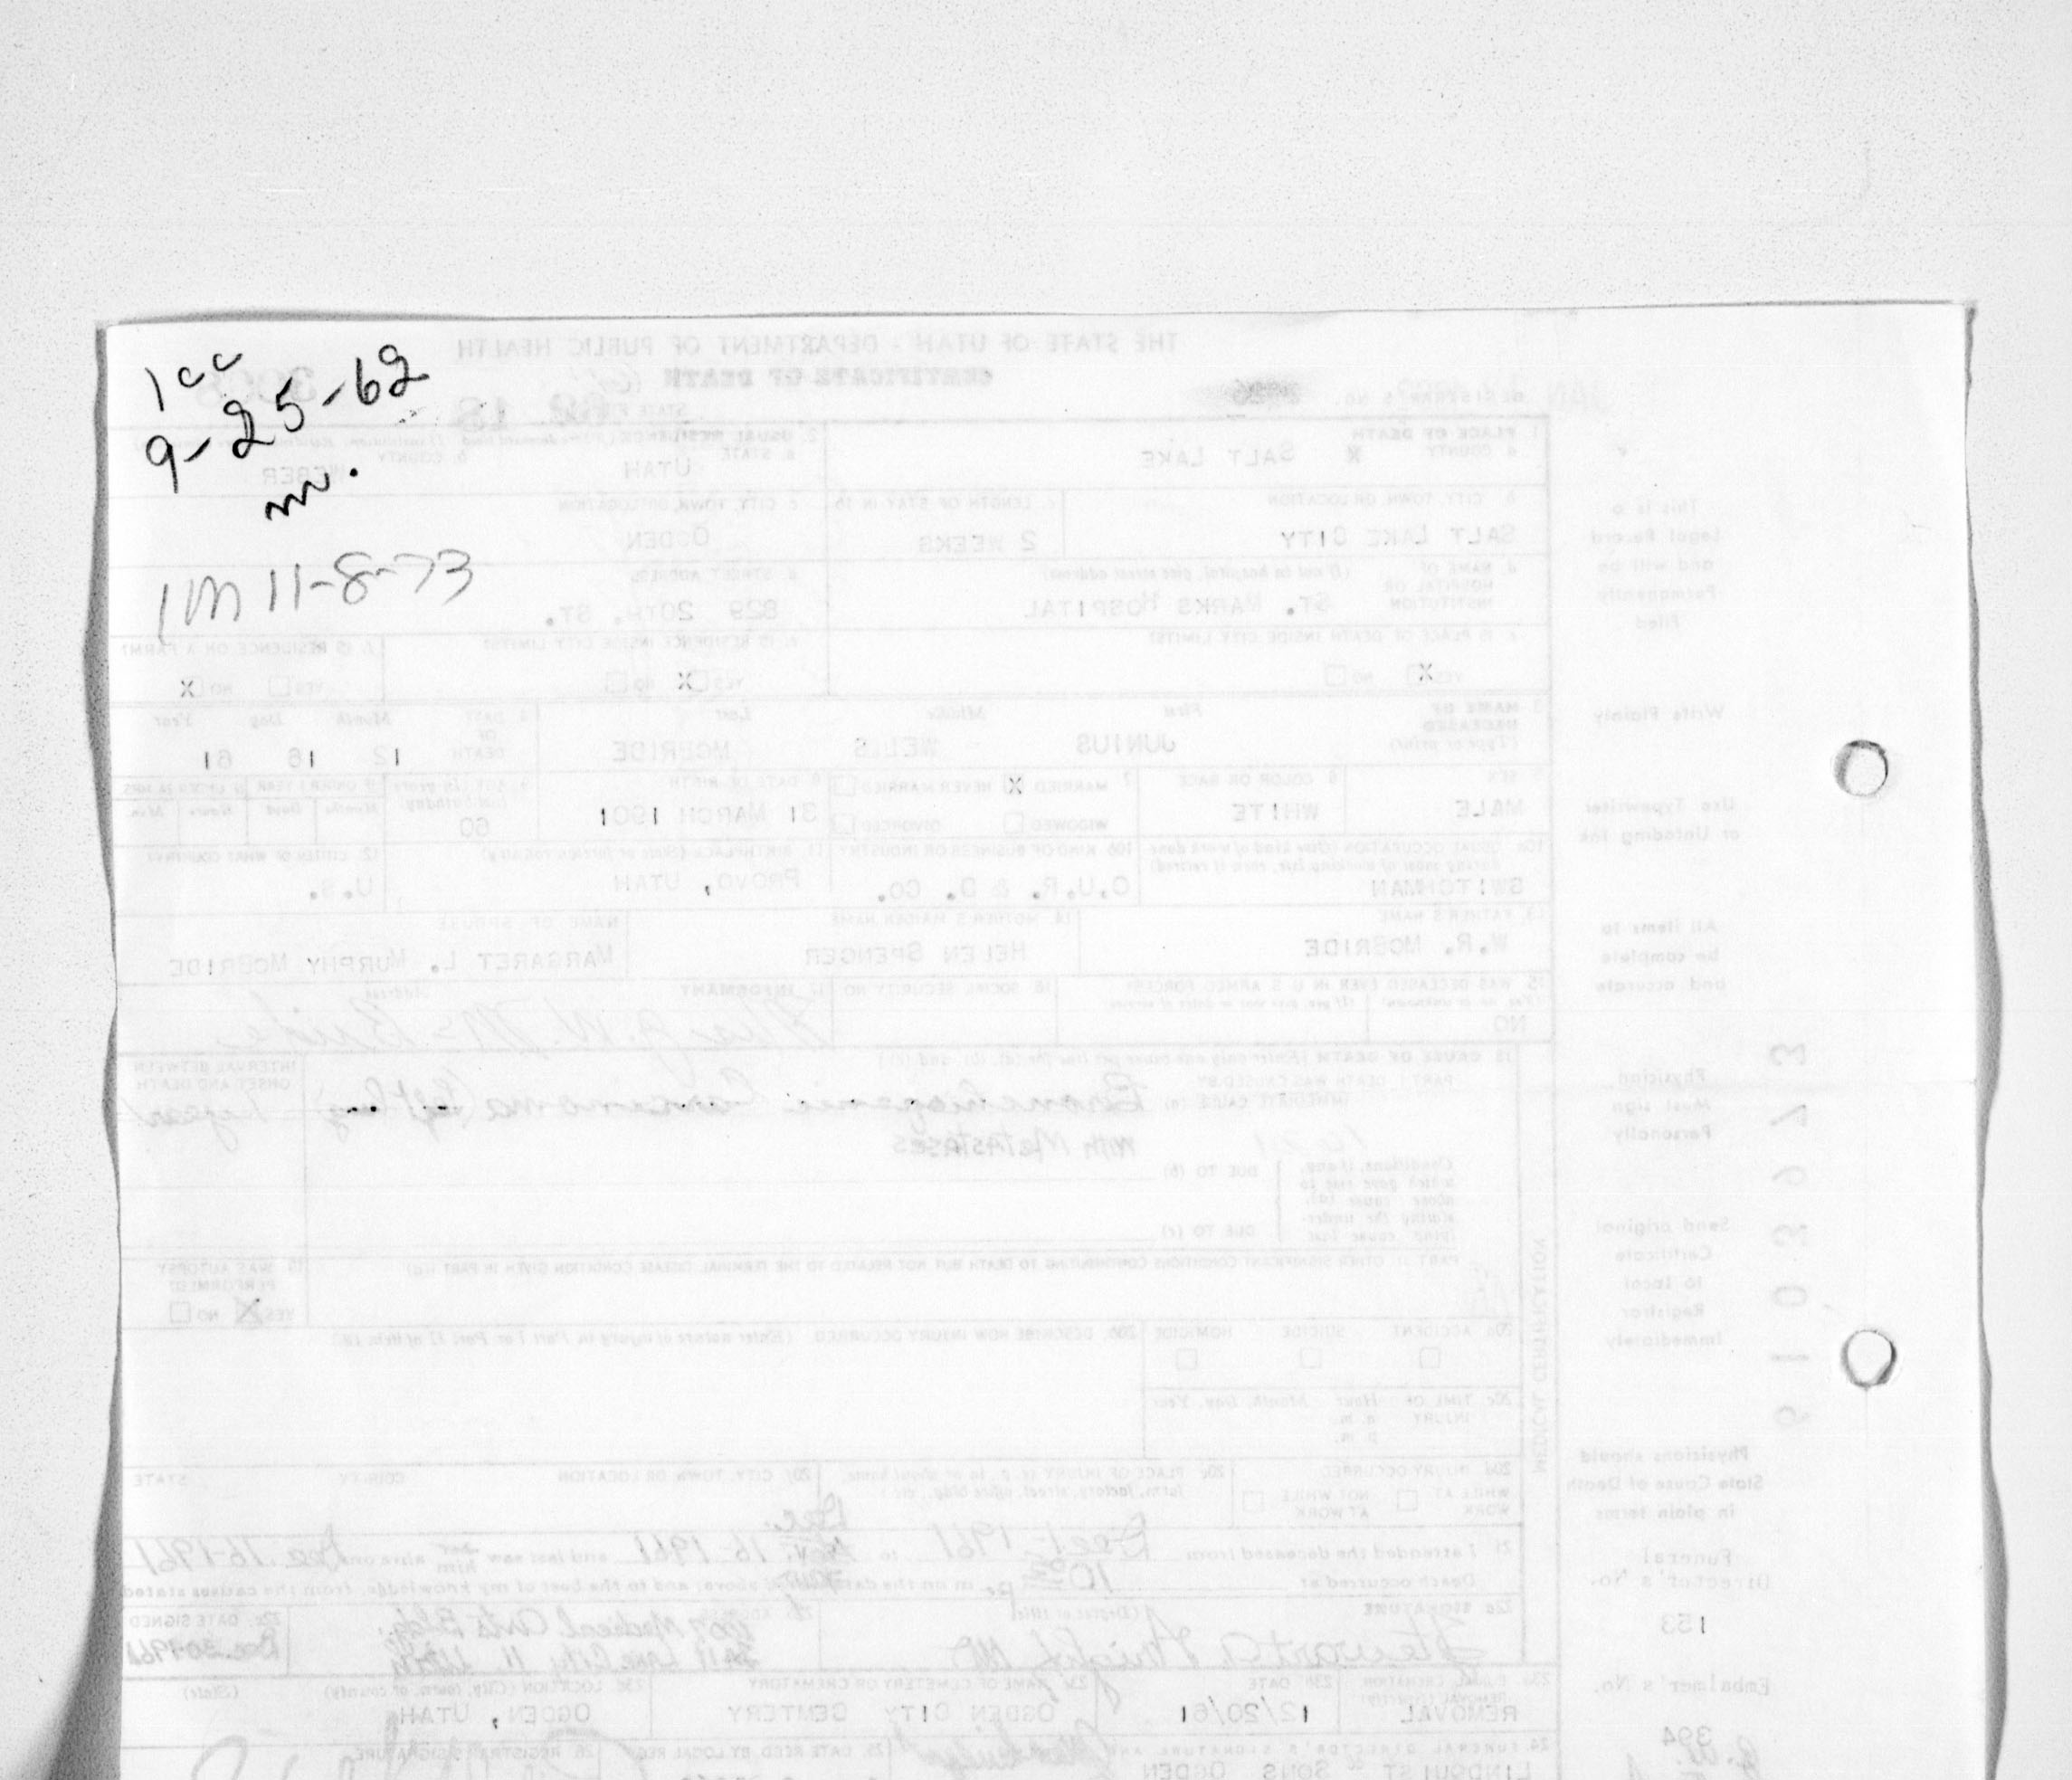 1cc
9-25-62
m.
1m 11-8-73
THE STATE OF UTAH - DEPARTMENT OF PUBLIC HEALTH
CERTIFICATE OF DEATH
REGISTRAR'S NO.
STATE FILE NO. 18
1. PLACE OF DEATH
a. COUNTY X SALT LAKE
2. USUAL RESIDENCE
a. STATE UTAH b. COUNTY WEBER
b. CITY, TOWN, OR LOCATION SALT LAKE CITY
c. LENGTH OF STAY IN 1b 2 WEEKS
c. CITY, TOWN, OR LOCATION OGDEN
d. NAME OF HOSPITAL OR INSTITUTION (If not in hospital, give street address) ST. MARKS HOSPITAL
d. STREET ADDRESS 829 20TH. ST.
e. IS PLACE OF DEATH INSIDE CITY LIMITS?
YES X NO
e. IS RESIDENCE INSIDE CITY LIMITS?
YES X NO
f. IS RESIDENCE ON A FARM?
YES NO X
3. NAME OF DECEASED (Type or print)
First Middle Last
JUNIUS WELLS MCBRIDE
4. DATE OF DEATH
Month Day Year
12 16 61
5. SEX MALE
6. COLOR OR RACE WHITE
7. MARRIED X NEVER MARRIED
WIDOWED DIVORCED
8. DATE OF BIRTH 31 MARCH 1901
9. AGE (In years last birthday) 60
IF UNDER 1 YEAR IF UNDER 24 HRS
Months Days Hours Min.
10a. USUAL OCCUPATION (Give kind of work done during most of working life, even if retired) SWITCHMAN
10b. KIND OF BUSINESS OR INDUSTRY O.U.R. & D. CO.
11. BIRTHPLACE (State or foreign country) PROVO, UTAH
12. CITIZEN OF WHAT COUNTRY? U.S.
13. FATHER'S NAME W.R. MCBRIDE
14. MOTHER'S MAIDEN NAME HELEN SPENCER
NAME OF SPOUSE MARGARET L. MURPHY MCBRIDE
15. WAS DECEASED EVER IN U.S. ARMED FORCES?
(Yes, no or unknown) (If yes, give war or dates of service)
NO
16. SOCIAL SECURITY NO.
17. INFORMANT Address
Mrs J. W. McBride
18. CAUSE OF DEATH (Enter only one cause per line for (a), (b), and (c).)
PART I. DEATH WAS CAUSED BY:
IMMEDIATE CAUSE (a) Bronchiogenic Carcinoma (left lung)
with Metastases
INTERVAL BETWEEN ONSET AND DEATH
1 year
Conditions, if any, which gave rise to above cause (a), stating the under-lying cause last.
DUE TO (b)
DUE TO (c)
PART II. OTHER SIGNIFICANT CONDITIONS CONTRIBUTING TO DEATH BUT NOT RELATED TO THE TERMINAL DISEASE CONDITION GIVEN IN PART I(a)
19. WAS AUTOPSY PERFORMED?
YES X NO
20a. ACCIDENT SUICIDE HOMICIDE
20b. DESCRIBE HOW INJURY OCCURRED. (Enter nature of injury in Part I or Part II of item 18.)
20c. TIME OF INJURY Hour Month, Day, Year
a.m.
p.m.
20d. INJURY OCCURRED
WHILE AT WORK NOT WHILE AT WORK
20e. PLACE OF INJURY (e.g., in or about home, farm, factory, street, office bldg., etc.)
20f. CITY, TOWN OR LOCATION COUNTY STATE
21. I attended the deceased from Sept-1961 to Dec. 16-1961 and last saw him alive on Dec 16-1961
Death occurred at p. m on the date stated above; and to the best of my knowledge, from the causes stated.
22a. SIGNATURE (Degree or title)
Stewart A Wright MD
22b. ADDRESS Medical Arts Bldg.
Salt Lake City 11, Utah
22c. DATE SIGNED
Dec. 20-1961
23a. BURIAL, CREMATION, REMOVAL (Specify) REMOVAL
23b. DATE 12/20/61
23c. NAME OF CEMETERY OR CREMATORY OGDEN CITY CEMTERY
23d. LOCATION (City, town, or county) (State) OGDEN, UTAH
24. FUNERAL DIRECTOR'S SIGNATURE AND
LINDQUIST & SONS OGDEN
25. DATE RECD. BY LOCAL REG.
26. REGISTRAR'S SIGNATURE
MEDICAL CERTIFICATION
This is a
Legal Record
and will be
Permanently
Filed
Write Plainly
Use Typewriter
or Unfading Ink
All items to
be complete
and accurate
Physician
Must sign
Personally
Send original
Certificate
to local
Registrar
Immediately
Physicians should
State Cause of Death
in plain terms
Funeral
Director's No.
153
Embalmer's No.
394